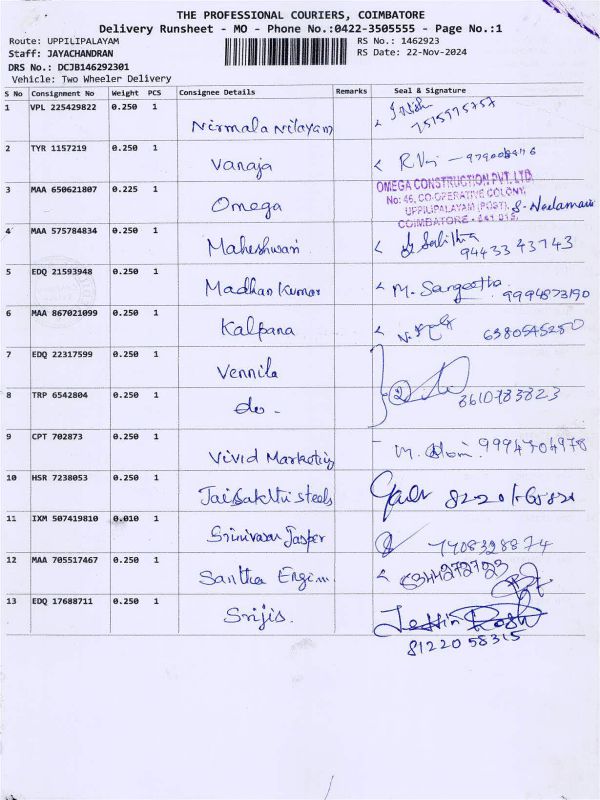 THE PROFESSIONAL COURIERS, COIMBATORE
Delivery Runsheet - MO - Phone No.:0422-3505555 - Page No.:1
Route: UPPILIPALAYAM
RS No.: 1462923
Staff: JAYACHANDRAN
RS Date: 22-Nov-2024
DRS No.: DCJB146292301
Vehicle: Two Wheeler Delivery
S No Consignment No Weight PCS Consignee Details Remarks Seal & Signature
1 VPL 225429822 0.250 1 Nirmala Nilayam
2 TYR 1157219 0.250 1 Vanaja
3 MAA 650621807 0.225 1 Omega
OMEGA CONSTRUCTION PVT. LTD.
No: 46, CO-OPERATIVE COLONY,
UPPILIPALAYAM (POST),
COIMBATORE - 641 015.
4 MAA 575784834 0.250 1 Maheshwari 94433 43743
5 EDQ 21593948 0.250 1 Madhan Kumar M. Sangeetha 9994873190
6 MAA 867021099 0.250 1 Kalpana 6380545280
7 EDQ 22317599 0.250 1 Vennila
8 TRP 6542804 0.250 1 do - 2 8610783823
9 CPT 702873 0.250 1 Vivid Marketing 9994704978
10 HSR 7238053 0.250 1 Jaisakthi steels
11 IXM 507419810 0.010 1 Srinivasan Jasper 7408328874
12 MAA 705517467 0.250 1 Santha Engin.
13 EDQ 17688711 0.250 1 Srijis.
8122058315